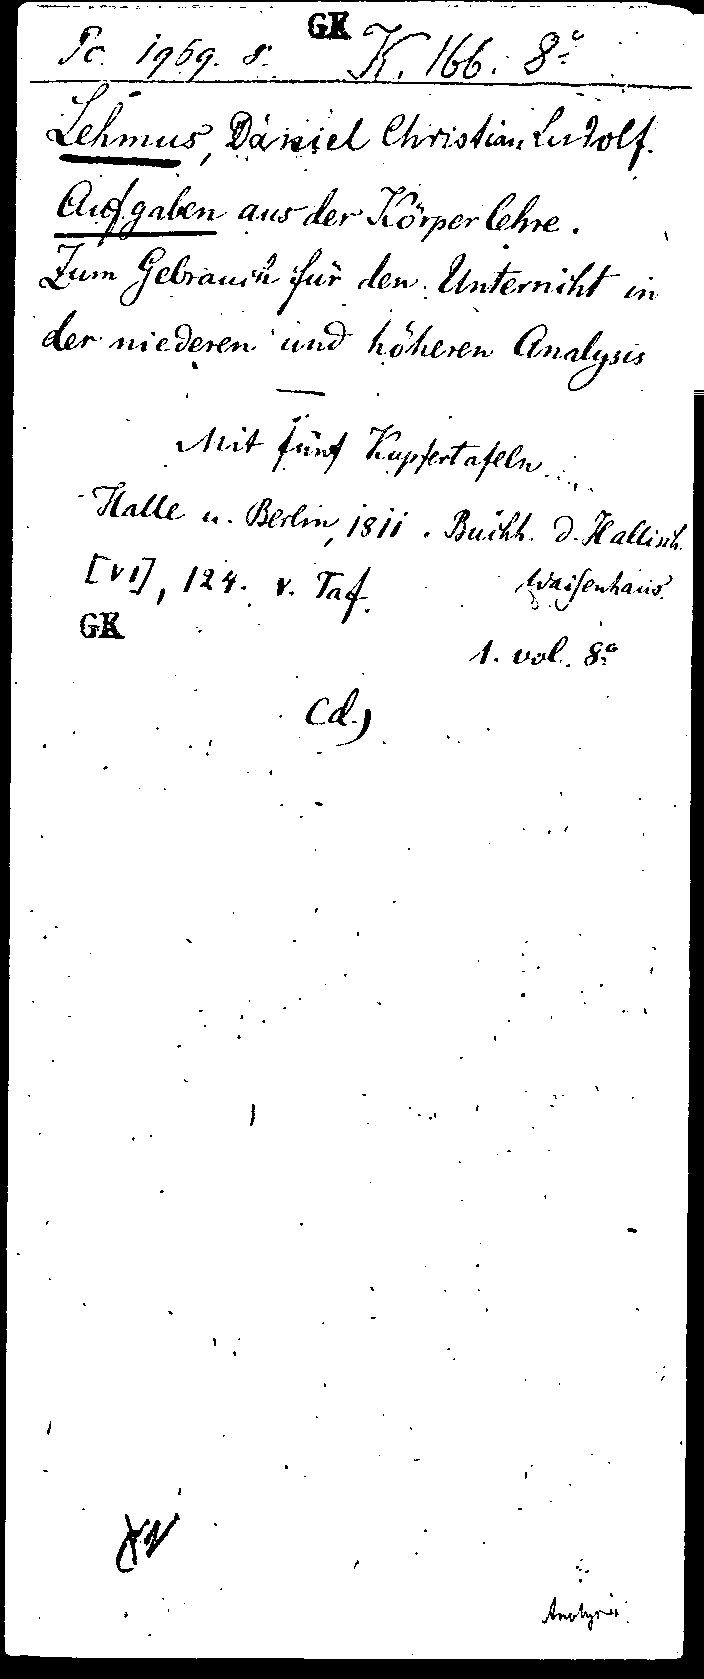 GK
Pc. 1969. 8. K. 166. 8°
Lehmus, Daniel Christian Ludolf.
Aufgaben aus der Körperlehre.
Zum Gebrauch für den Unterricht in
der niederen und höheren Analysis
—
Mit fünf Kupfertafeln
Halle u. Berlin, 1811. Buchh. d. Hallisch.
[VI], 124. V. Taf. Waisenhaus.
GK
1. vol. 8°
Cd.)
Analysis